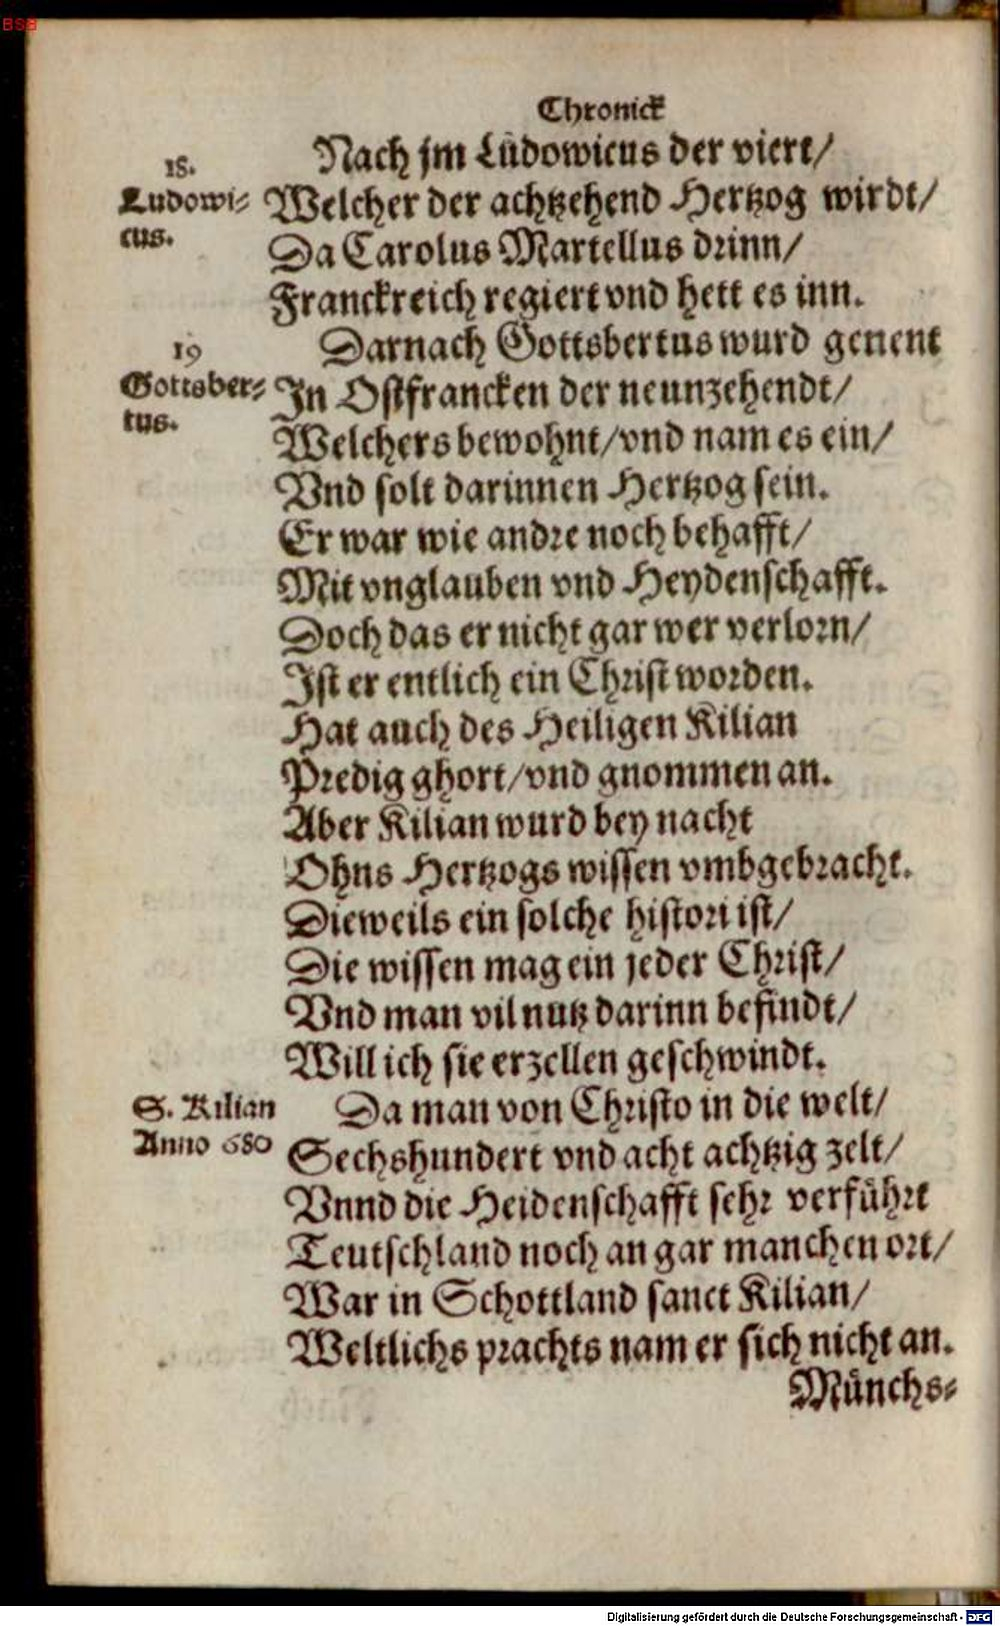 BSB
Chronick
Nach jm Ludowicus der viert/
18.
Ludowi⸗
cus.
Welcher der achtzehend Hertzog wirdt/
Da Carolus Martellus drinn/
Franckreich regiert vnd hett es inn.
Darnach Gottsbertus wurd genent
19
Gottsber⸗
tus.
In Ostfrancken der neunzehendt/
Welchers bewohnt/vnd nam es ein/
Vnd solt darinnen Hertzog sein.
Er war wie andre noch behafft/
Mit vnglauben vnd Heydenschafft.
Doch das er nicht gar wer verlorn/
Ist er entlich ein Christ worden.
Hat auch des Heiligen Kilian
Predig ghort/vnd gnommen an.
Aber Kilian wurd bey nacht
Ohns Hertzogs wissen vmbgebracht.
Dieweils ein solche histori ist/
Die wissen mag ein jeder Christ/
Vnd man vil nutz darinn befindt/
Will ich sie erzellen geschwindt.
S. Kilian
Anno 680
Da man von Christo in die welt/
Sechshundert vnd acht achtzig zelt/
Vnnd die Heidenschafft sehr verführt
Teutschland noch an gar manchen ort/
War in Schottland sanct Kilian/
Weltlichs prachts nam er sich nicht an.
Münchs⸗
Digitalisierung gefördert durch die Deutsche Forschungsgemeinschaft - DFG